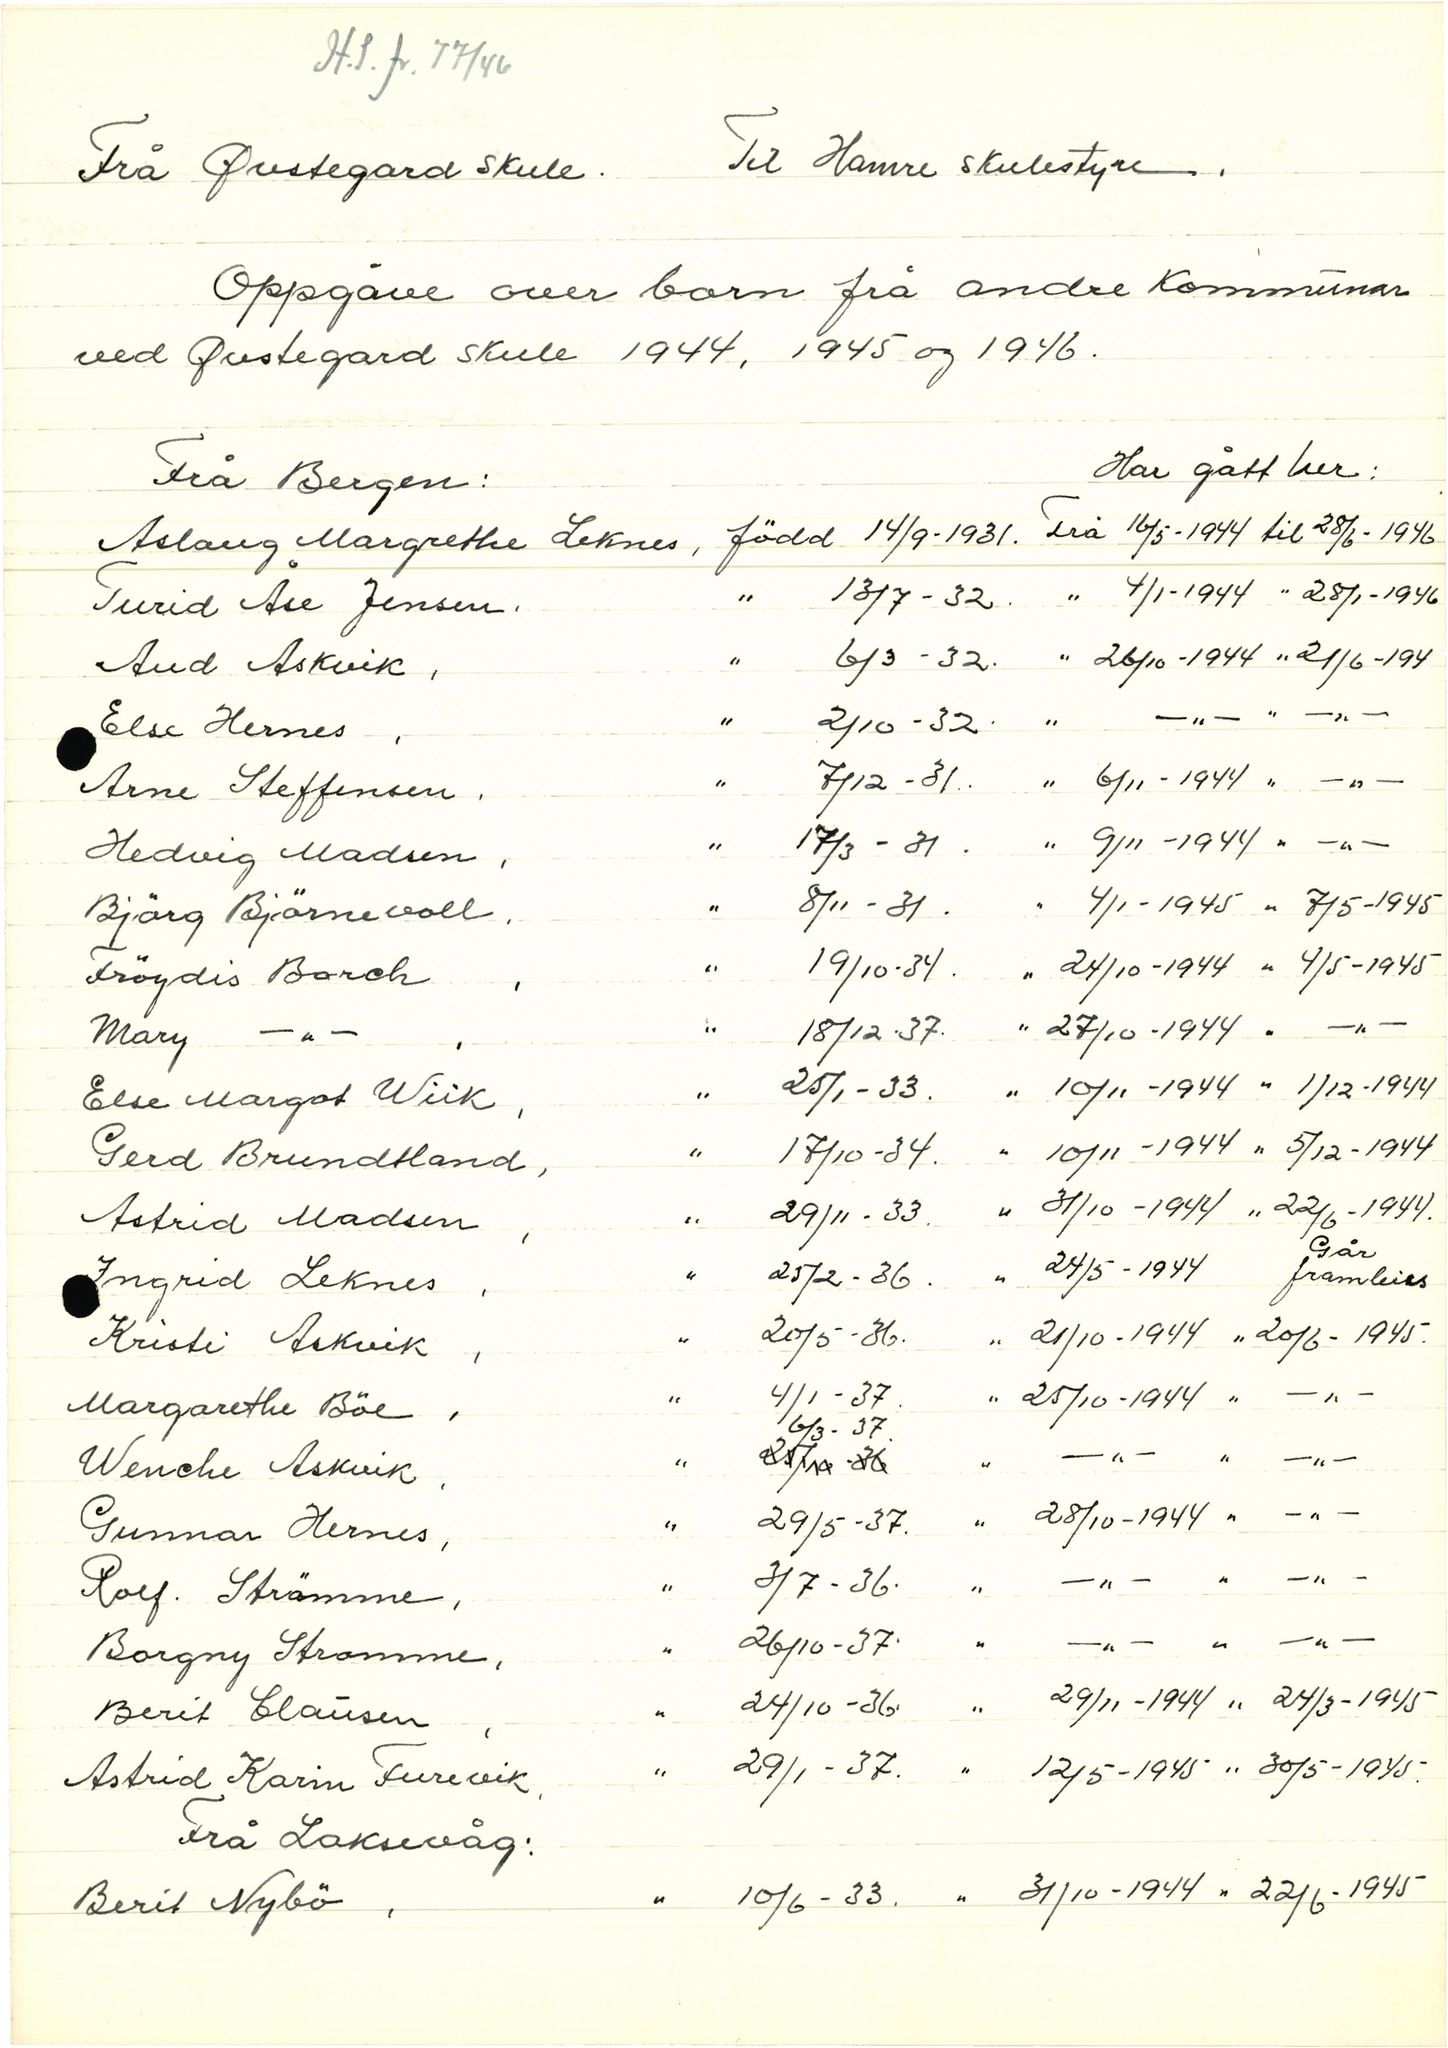 H.S. jr. 77/46
Frå Øvstegard skule. Til Hamre skulestyre.
Oppgåve over born frå andre kommunar
ved Øvstegard skule 1944, 1945 og 1946.
Frå Bergen: Har gått her:
Aslaug Margrethe Leknes, född 14/9-1931. Frå 16/5-1944 til 28/6-1946
Turid Åse Jensen. " 13/7-32. " 4/1-1944 " 28/1-1946
Aud Askvik, " 6/3-32. " 26/10-1944 " 21/6-194
Else Hernes, " 2/10-32. " —"— " —"—
Arne Steffensen, " 7/12-31. " 6/11-1944 " —"—
Hedvig Madsen, " 17/3-31. " 9/11-1944 " —"—
Bjärg Björnevoll, " 8/11-31. " 4/1-1945 " 7/5-1945
Fröydis Borch, " 19/10-34. " 24/10-1944 " 4/5-1945
Mary —"—, " 18/12-37. " 27/10-1944 " —"—
Else Margot Wiik, " 25/1-33. " 10/11-1944 " 1/12-1944
Gerd Brundtland, " 17/10-34. " 10/11-1944 " 5/12-1944
Astrid Madsen, " 29/11-33. " 31/10-1944 " 22/6-1944.
Går
Ingrid Leknes, " 25/2-36. " 24/5-1944 framleies
Kristi Askvik, " 20/5-36. " 21/10-1944 " 20/6-1945.
Margarethe Böe, " 4/1-37. " 25/10-1944 " —"—
6/3-37.
Wenche Askvik, " " —"— " —"—
Gunnar Hernes, " 29/5-37. " 28/10-1944 " —"—
Rolf. Strämme, " 3/7-36. " —"— " —"—
Borgny Stromme, " 26/10-37. " —"— " —"—
Berit Clausen, " 24/10-36. " 29/11-1944 " 24/3-1945
Astrid Karin Furevik, " 29/1-37. " 12/5-1945 " 30/5-1945.
Frå Laksevåg:
Berit Nybö, " 10/6-33. " 31/10-1944 " 22/6-1945